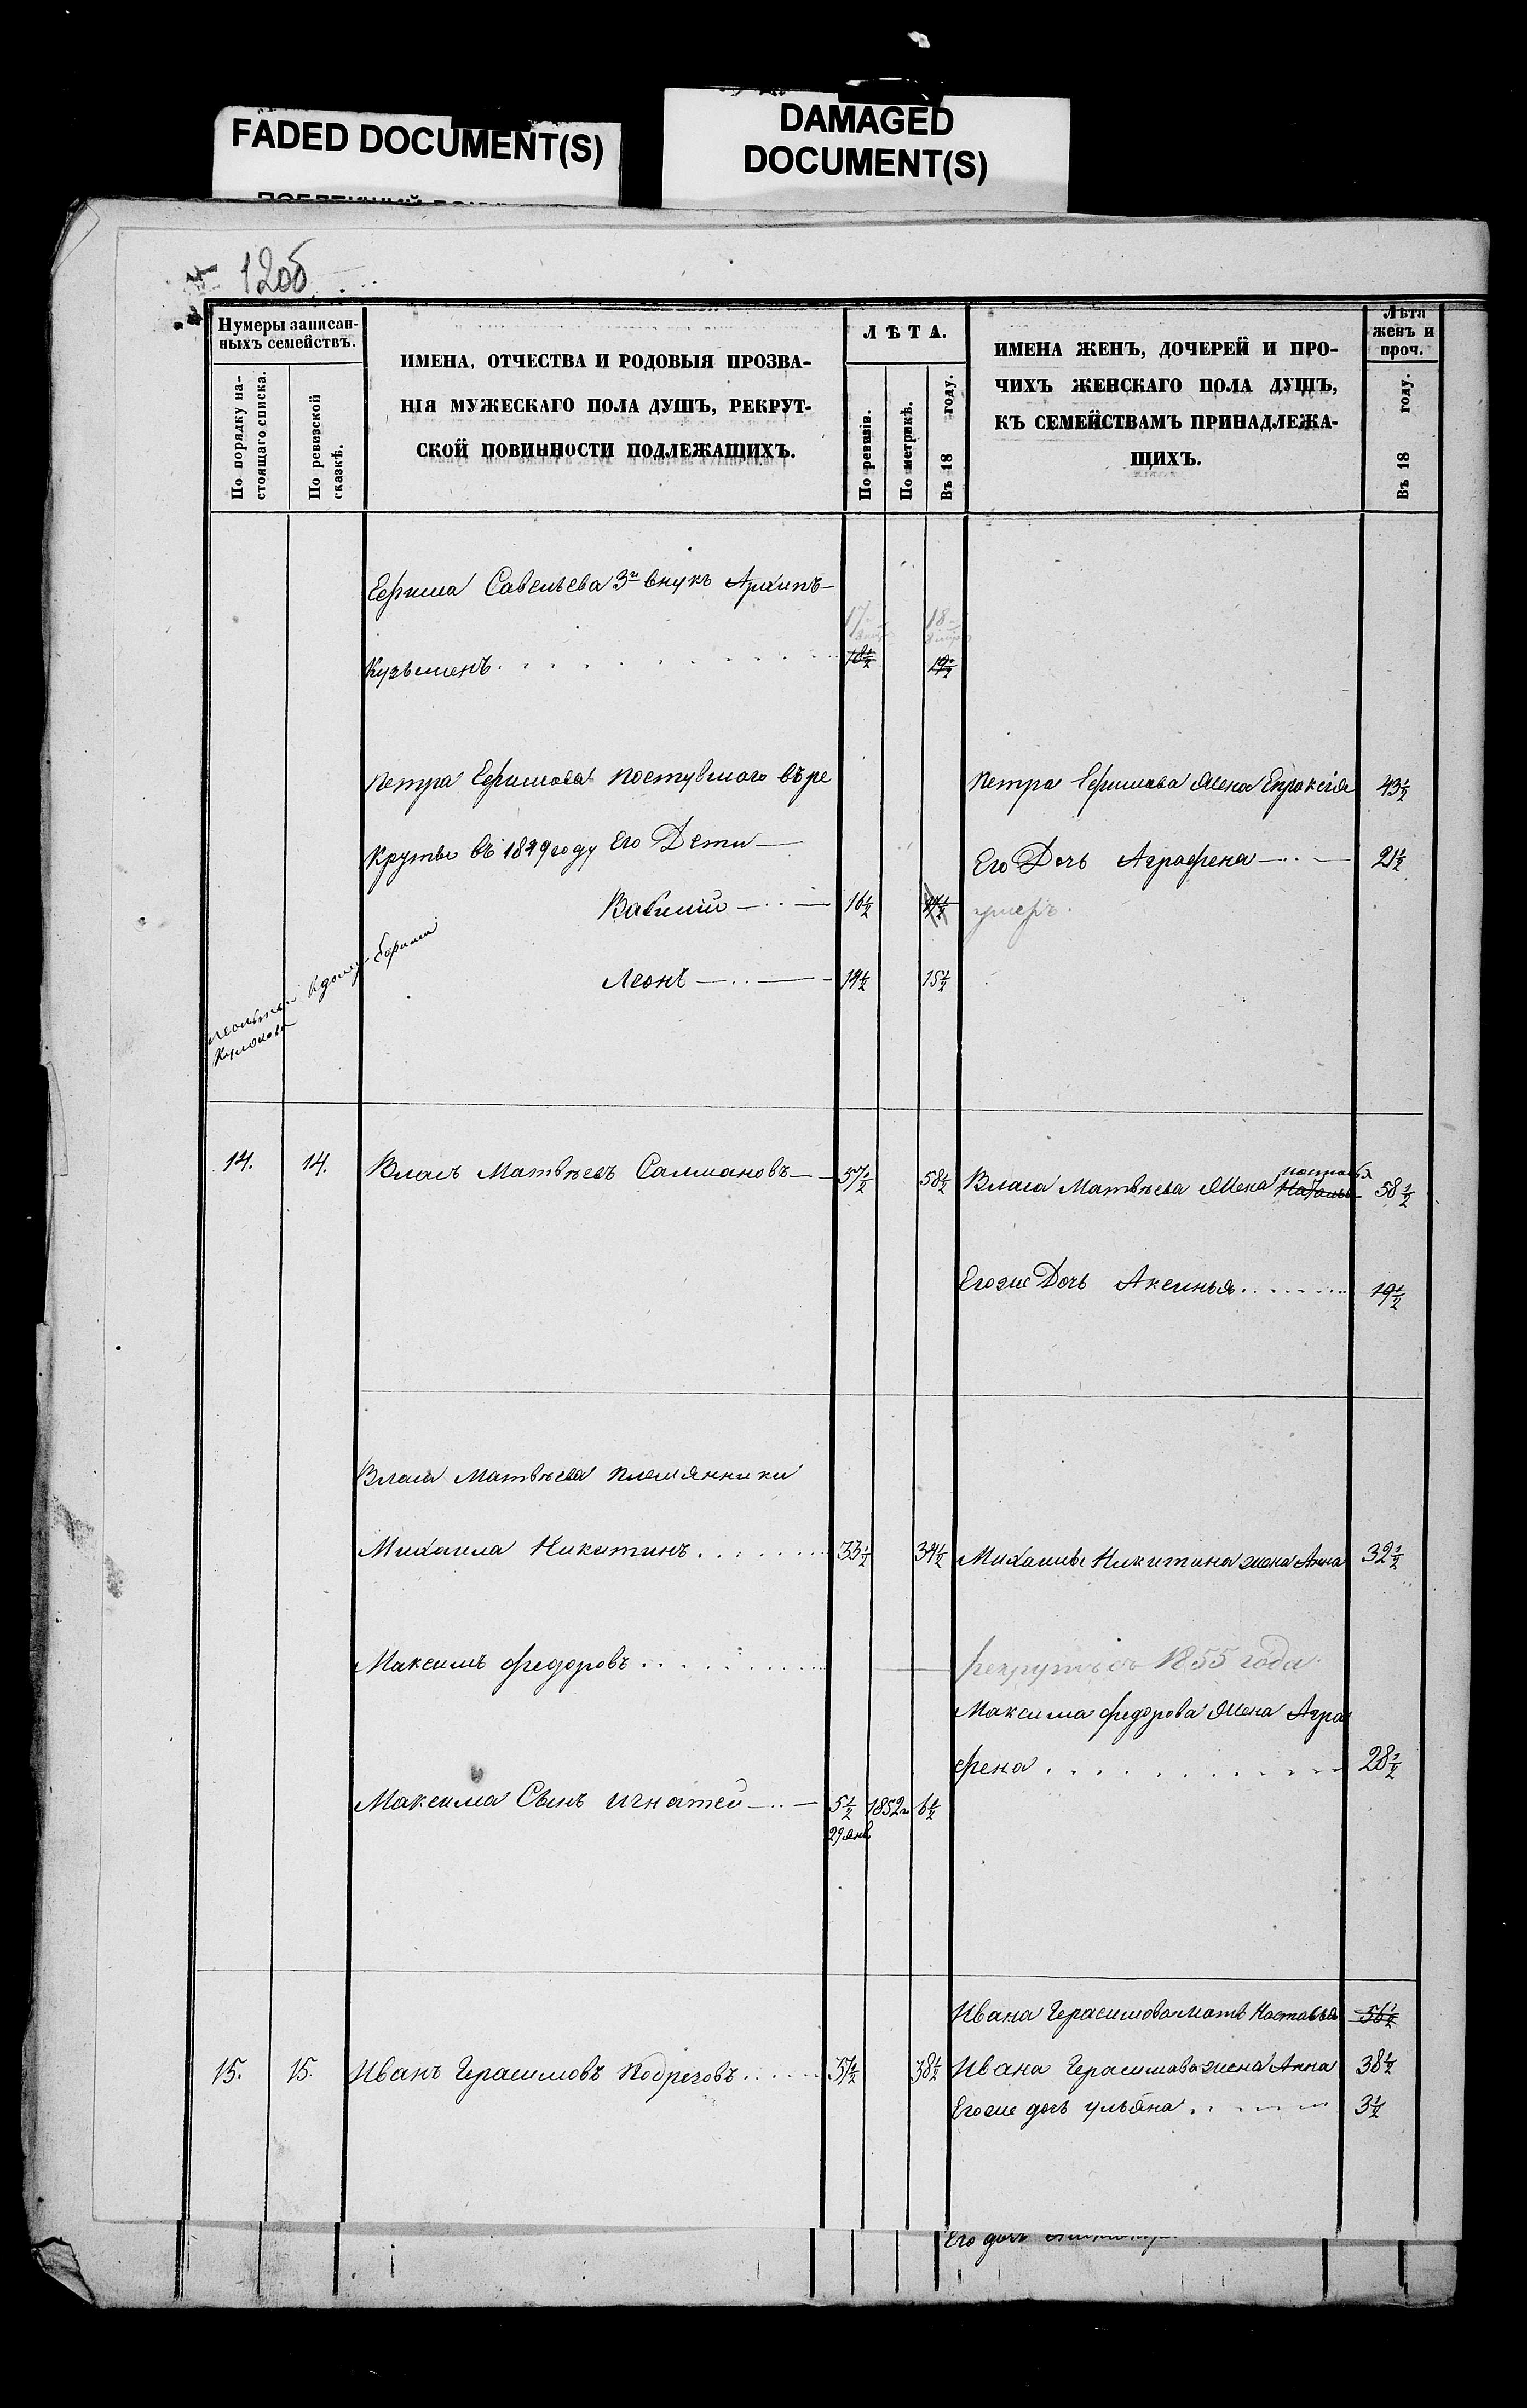 FADED DOCUMENT(S)
DAMAGED
DOCUMENT(S)
12об
Нумеры записан-
ныхъ семействъ.
По порядку на-
стоящаго списка.
По ревизской
сказкѣ.
ИМЕНА, ОТЧЕСТВА И РОДОВЫЯ ПРОЗВА-
НІЯ МУЖЕСКАГО ПОЛА ДУШЪ, РЕКРУТ-
СКОЙ ПОВИННОСТИ ПОДЛЕЖАЩИХЪ.
ЛѢТА.
По ревизіи.
По метрикѣ.
Въ 18 году.
ИМЕНА ЖЕНЪ, ДОЧЕРЕЙ И ПРО-
ЧИХЪ ЖЕНСКАГО ПОЛА ДУШЪ,
КЪ СЕМЕЙСТВАМЪ ПРИНАДЛЕЖА-
ЩИХЪ.
Лѣта
женъ и
проч.
Въ 18 году.
Ефима Савельева 3й внукъ Архипъ
17 18
Кузьминъ 18½ 19½
Петра Ефимова поступшого въ ре Петра Ефимова Жена Епраксія 43½
круты въ 1849 году Его Дети Его Дочь Аграфена 21½
16½ 17½ умеръ.
Леонъ 14½ 15½
14. 14. Власъ Матвѣевъ Салмановъ 57½ 58½ Власа Матвѣева Жена Настасья 58½
Егоже Дочь Аксинья 19½
Власа Матвѣева племянники
Михаила Никитинъ 33½ 34½ Михаилы Никитина жена Анна 32½
Максимъ Федоровъ рекрутъ съ 1855 года
Максима Федорова Жена Агра
фена 28½
Максима Сынъ Игнатей 5½ 1852 6½
29 янв
Ивана Герасимова мать Настасья 56½
15. 15. Иванъ Герасимовъ Подрезовъ 37½ 38½ Ивана Герасимова жена Анна 38½
Егоже дочь Ульяна 3½
Его дочь